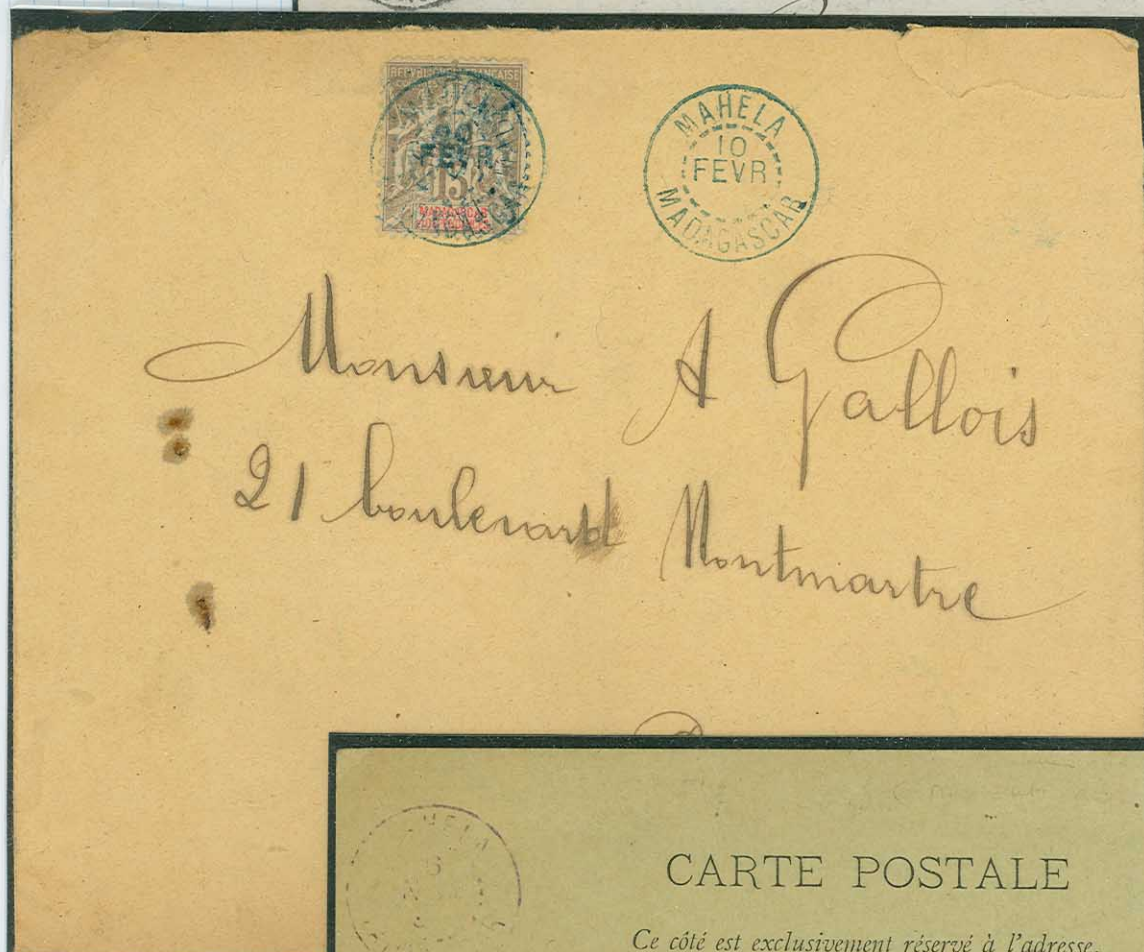 REPUBLIQUE FRANÇAISE
FEVR
15
MADAGASCAR
MAHELA
10
FEVR
MADAGASCAR
Monsieur A Gallois
21 boulevard Montmartre
CARTE POSTALE
Ce côté est exclusivement réservé à l'adresse.